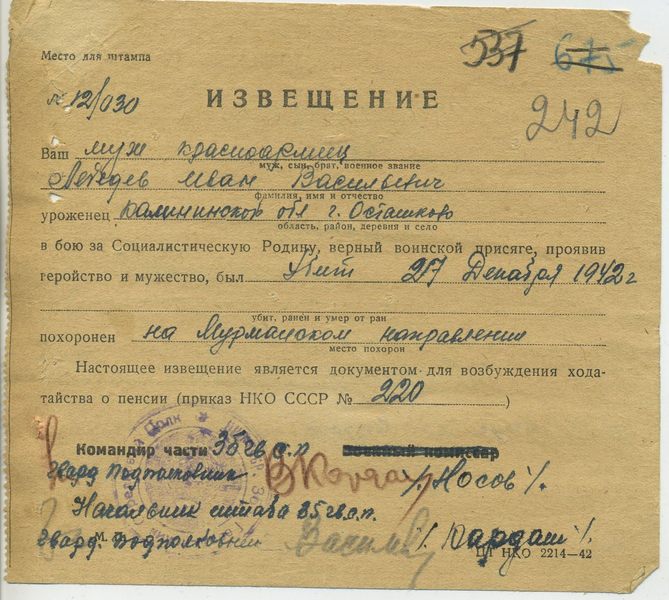 Место для штампа
537 675
№ 12/030
ИЗВЕЩЕНИЕ
242
Ваш муж красноармеец
муж, сын, брат, военное звание
Лебедев Иван Васильевич
фамилия, имя и отчество
уроженец Калининской обл г. Осташково
область, район, деревня и село
в бою за Социалистическую Родину, верный воинской присяге, проявив
геройство и мужество, был Убит 27 Декабря 1942 г
убит, ранен и умер от ран
похоронен на Мурманском направлении
место похорон
Настоящее извещение является документом для возбуждения хода-
тайства о пенсии (приказ НКО СССР № 220 )
Командир части 35 гв.с.п Военный комиссар
Гвард Подполковник /. Носов /.
Начальник штаба 35 гв.с.п.
Гвард. Подполковник /. Кардаш /.
М.
ЦТ НКО 2214—42